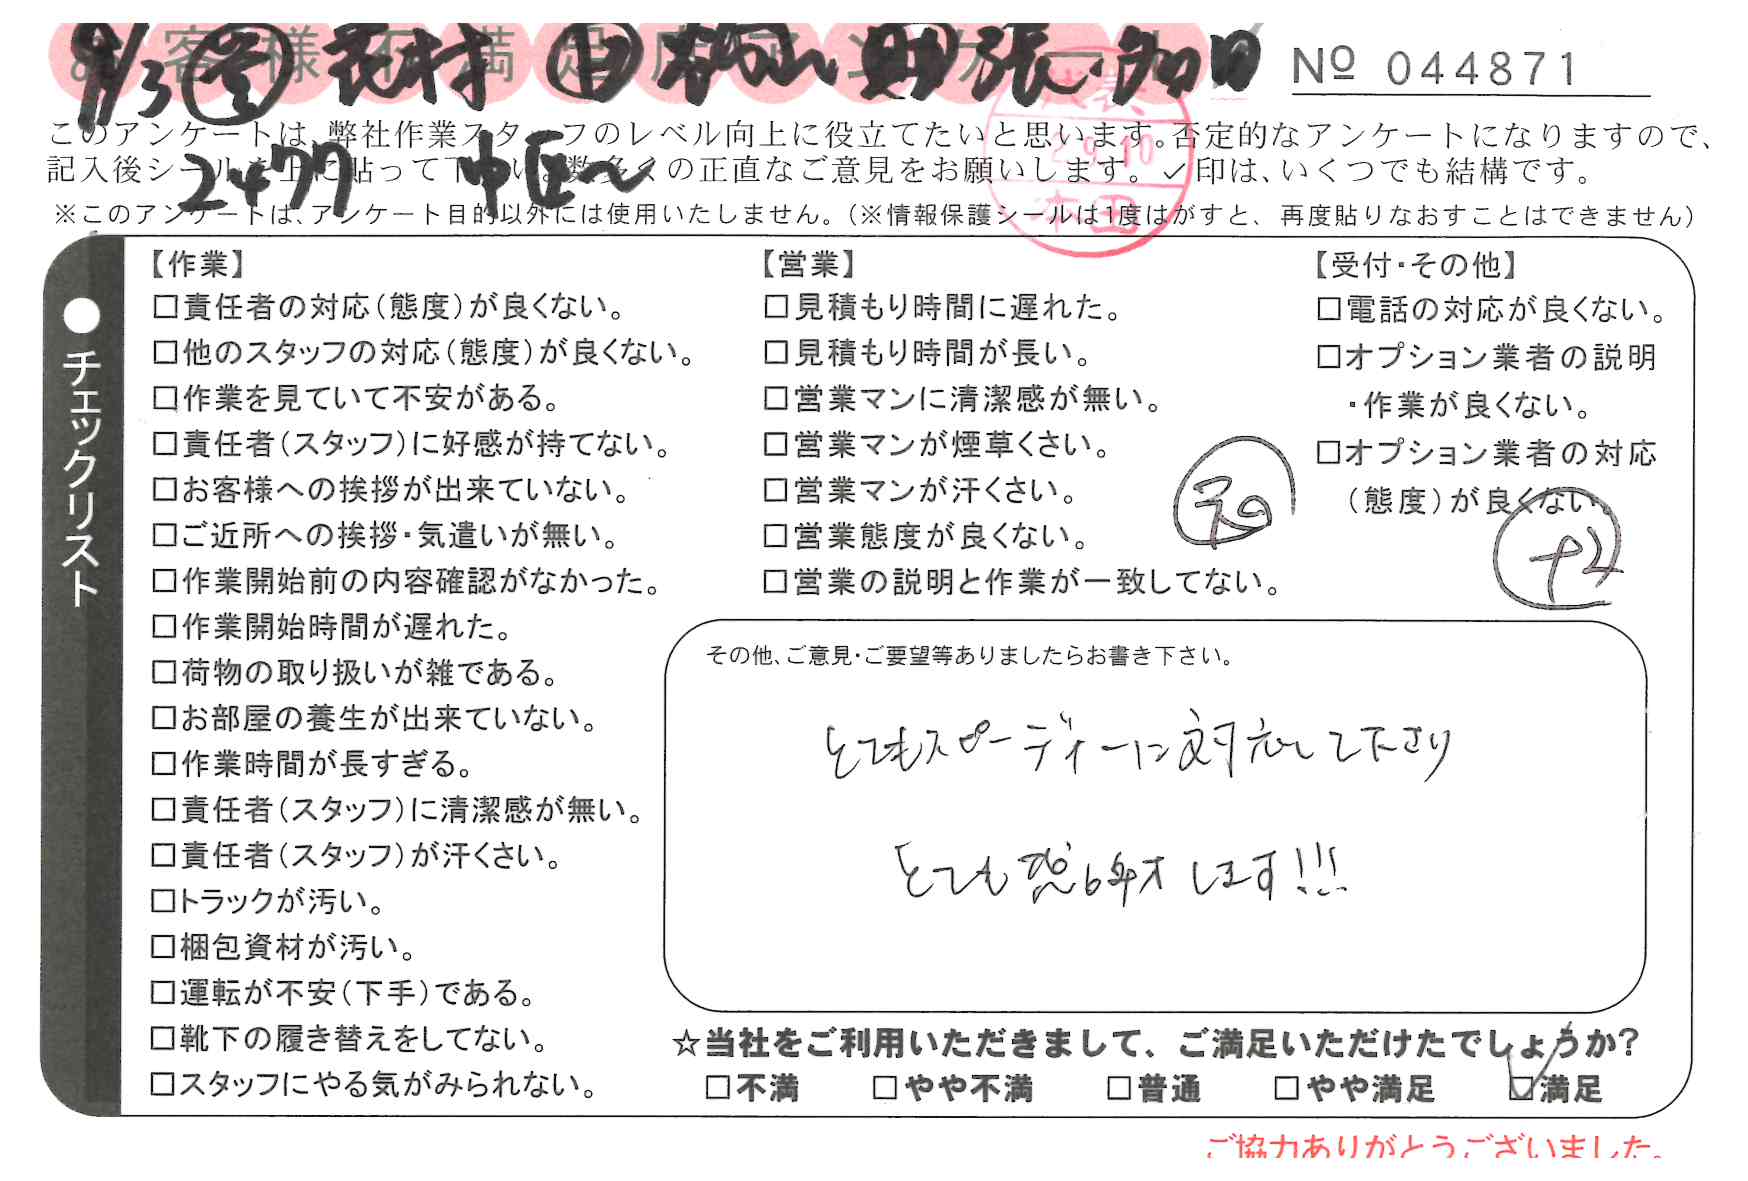 お客様不満足度アンケート
9/3
№ 044871
このアンケートは、弊社作業スタッフのレベル向上に役立てたいと思います。否定的なアンケートになりますので、
記入後シールを上に貼って下さい。数多くの正直なご意見をお願いします。✓印は、いくつでも結構です。
2477 中区〜
※このアンケートは、アンケート目的以外には使用いたしません。(※情報保護シールは1度はがすと、再度貼りなおすことはできません)
29.-10
本田
●チェックリスト
【作業】
□責任者の対応(態度)が良くない。
□他のスタッフの対応(態度)が良くない。
□作業を見ていて不安がある。
□責任者(スタッフ)に好感が持てない。
□お客様への挨拶が出来ていない。
□ご近所への挨拶・気遣いが無い。
□作業開始前の内容確認がなかった。
□作業開始時間が遅れた。
□荷物の取り扱いが雑である。
□お部屋の養生が出来ていない。
□作業時間が長すぎる。
□責任者(スタッフ)に清潔感が無い。
□責任者(スタッフ)が汗くさい。
□トラックが汚い。
□梱包資材が汚い。
□運転が不安(下手)である。
□靴下の履き替えをしてない。
□スタッフにやる気がみられない。
【営業】
□見積もり時間に遅れた。
□見積もり時間が長い。
□営業マンに清潔感が無い。
□営業マンが煙草くさい。
□営業マンが汗くさい。
□営業態度が良くない。
□営業の説明と作業が一致してない。
【受付・その他】
□電話の対応が良くない。
□オプション業者の説明
・作業が良くない。
□オプション業者の対応
(態度)が良くない。
+2
その他、ご意見・ご要望等ありましたらお書き下さい。
とてもスピーディーに対応して下さり
とても感謝します!!!
☆当社をご利用いただきまして、ご満足いただけたでしょうか?
□不満 □やや不満 □普通 □やや満足 ☑満足
ご協力ありがとうございました。